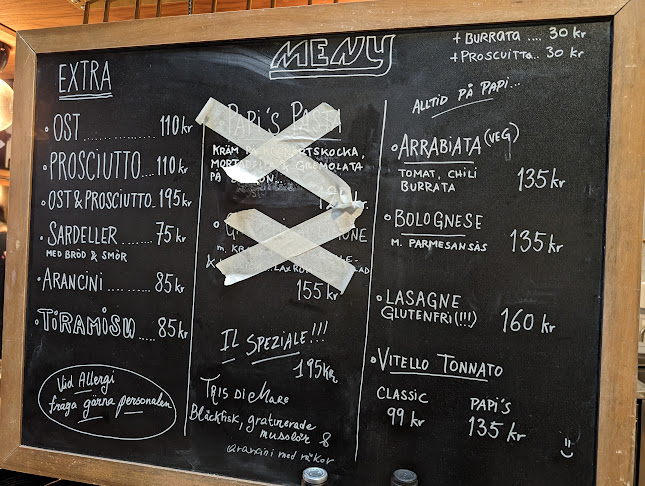 MENY
+ BURRATA .... 30 kr
+ PROSCUITTA.. 30 kr
EXTRA
OST ........... 110 kr
PROSCIUTTO ..... 110 kr
OST & PROSCIUTTO.. 195 kr
SARDELLER ........ 75 kr
MED BRÖD & SMÖR
ARANCINI ........ 85 kr
TIRAMISU ..... 85 kr
Vid Allergi
fråga gärna personalen
PAPI'S PASTA
KRÄM PÅ
MORTADELLA & GREMOLATA
PÅ
155 kr
IL SPEZIALE!!!
195 KR
TRIS Di MARE
Bläckfisk, gratinerade
musslor &
arancini med räkor
ALLTID PÅ PAPI...
ARRABIATA (VEG)
TOMAT, CHILI
BURRATA 135 kr
BOLOGNESE
M. PARMESANSÅS 135 kr
LASAGNE
GLUTENFRI(!!!) 160 kr
VITELLO TONNATO
CLASSIC PAPI'S
99 kr 135 kr